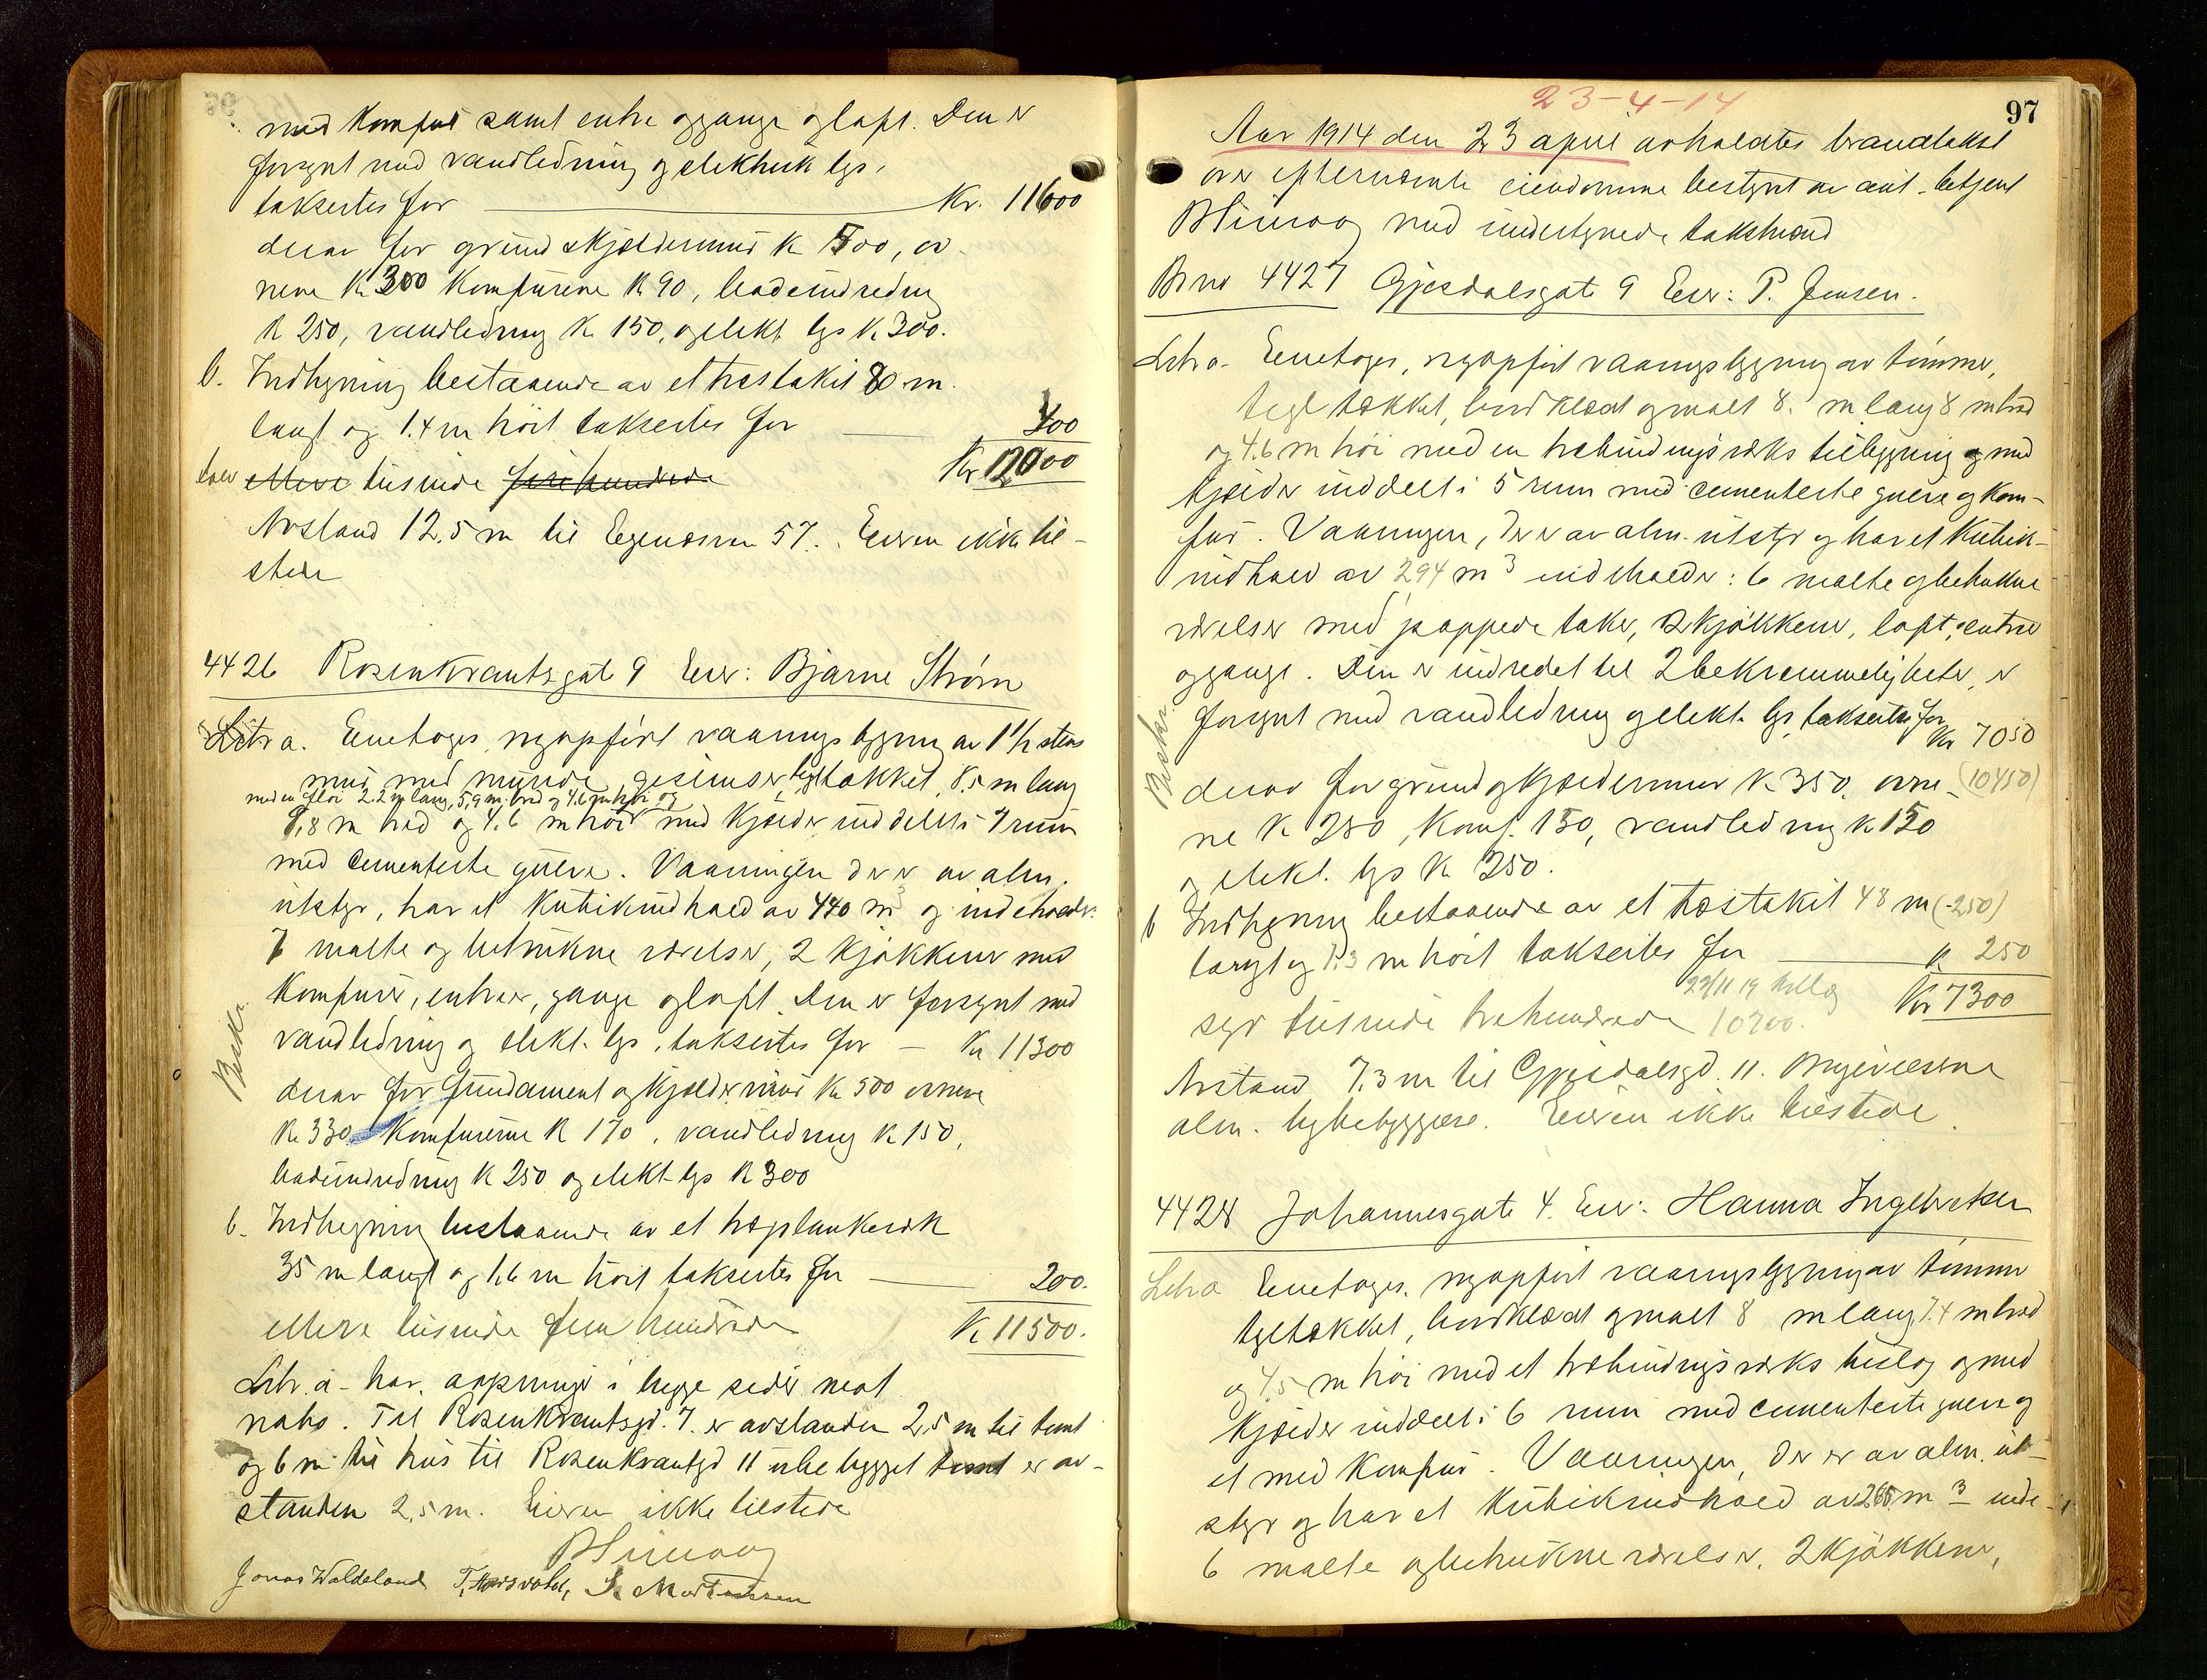 med komfur samt entre og gange og loft. Den er
forsynt med vandledning og elektrisk lys,
taksertes for Kr. 11600
derav for grund & kjældermur K 500, ov-
nene K 300 komfurene K 90, badeindredning
K 250, vandledning K 150, og elekt. lys K 300.
b. Indhegning bestaaende av et træstakit 80 m.
langt og 1.4 m høit taksertes for 400
tolv elleve tusinde fire hundrede Kr 12000
Avstand 12.5 m til Egenæsvn 57. Eieren ikke til-
stede
4426 Rosenkrantsgate 9 Eier: Bjarne Strøm
Litr a. Enetages, nyopført vaaningsbygning av 1 1/2 stens
mur med murede gesimser, tegltækket, 8.5 m lang
med en fløi 2.2 m lang, 5.9 m bred og 4.6 m høi og
9.8 m bred og 4.6 m høi med kjælder inddelt i 7 rum
med cementerte gulve. Vaaningen der er av alm.
utstyr, har et kubikindhold av 440 m3 og indeholder:
7 malte og betrukne værelser, 2 kjøkkener med
komfurer, entreer, gange og loft. Den er forsynt med
vandledning og elekt. lys, taksertes for — Kr 11300
Beskr.
derav for fundament og kjældermur Kr 500 ovnene
Kr 330 komfurerne K 170, vandledning K 150,
badeindredning K 250 og elekt lys K 300
b. Indhegning bestaaende av et træplankeværk
35 m langt og 1.6 m høit taksertes for 200.
elleve tusinde fem hundrede K 11500.
Litr. a. har aapninger i begge sider mot
nabo. Til Rosenkrantsgd. 7. er avstanden 2.5 m til tomt
og 6 m til hus til Rosenkrantzgd 11 ubebygget tomt er av-
standen 2,5 m. Eieren ikke tilstede
Jonas Waldeland S. Mortensen
97
23-4-14
Aar 1914 den 23 april avholdtes brandtakst
over efternævnte eiendomme bestyrt av amt. betjent
med undertegnede takstmænd
Br no 4427 Gjesdalsgate 9 Eier: P. Jensen.
Litr a. Enetages, nyopført vaaningsbygning av tømmer,
tegltækket, bordklædt og malt 8. m lang 8 m bred
og 4.6 m høi med en træbindingsværks tilbygning og med
kjælder inddelt i 5 rum med cementerte gulve og kom-
fur. Vaaningen, der er av alm. utstyr og har et kubik-
indhold av 294 m3 indeholder: 6 malte og betrukne
værelser med pappede taker, 2 kjøkkener, loft, entre
og gange. Den er indredet til 2 bekvemmeligheter, er
forsynt med vandledning og elekt. lys, taksertes for
Kr 7050
Beskr.
derav for grund og kjældermur K 350, ovne- (10450)
ne K 250, komf. 130, vandledning K 150
og elekt. lys K 250.
b Indhegning bestaaende av et træstakit 48 m (-250)
langt og 1.3 m høit taksertes for K 250
22/11 19 tillæg Kr 7300
syv tusinde trehundrede 10700.
Avstand 7.3 m til Gjesdalsgd. 11.
alm. bybebyggelse. Eieren ikke tilstede.
4428 Johannesgate 4. Eier: Hanna Ingebretsen
Litr a Enetages, nyopført vaaningsbygning av tømmer
tegltækket, bordklædt og malt 8 m lang 7.4 m bred
og 4,5 m høi med et træbindingsværks tilslag og med
kjælder inddelt i 6 rum med cementerte gulve og
et med komfur. Vaaningen, der er av alm. ut-
styr og har et kubikindhold av 265 m3 inde-
6 malte og betrukne værelser, 2 kjøkkene,